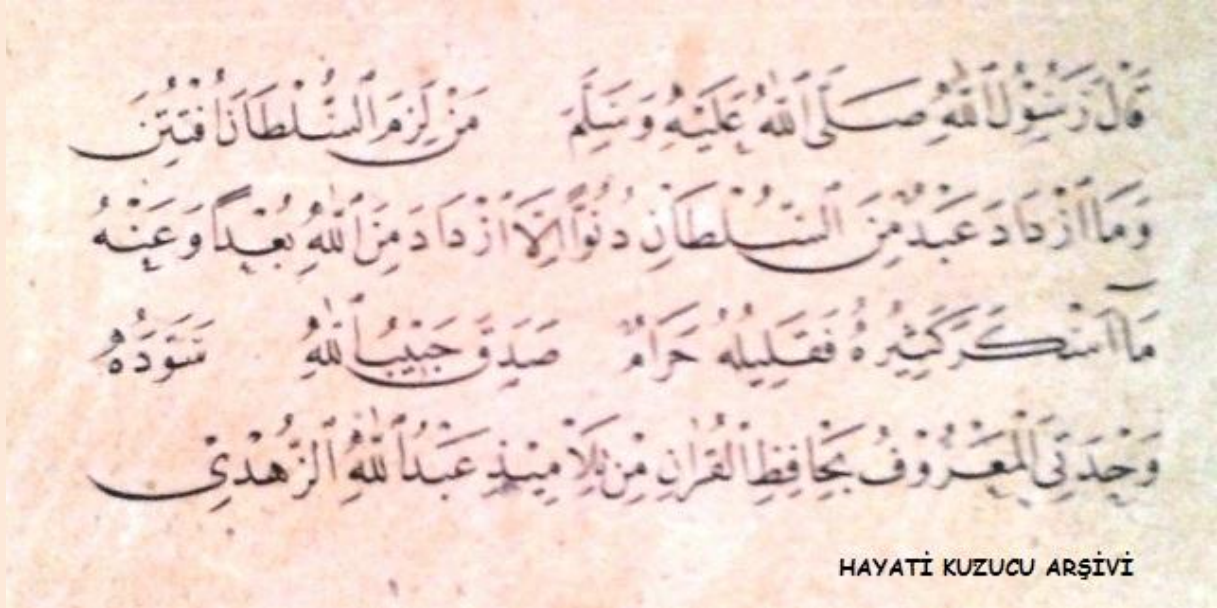 قَالَ رَسُولُ اللّٰهِ صَلَّى اللّٰهُ عَلَيْهِ وَسَلَّمَ مَنْ لَزِمَ السُّلْطَانَ افْتُتِنَ
وَمَا ازْدَادَ عَبْدٌ مِنَ السُّلْطَانِ دُنُوًّا اِلَّا ازْدَادَ مِنَ اللّٰهِ بُعْدًا وَعَنْهُ
مَا اَسْكَرَ كَثِيرُهُ فَقَلِيلُهُ حَرَامٌ صَدَقَ حَبِيبُ اللّٰهِ سَوَّدَهُ
وَحْدَتِي الْمَعْرُوفُ بِحَافِظِ الْقُرْاٰنِ مِنْ تَلَامِيذِ عَبْدُ اللّٰهِ الزُّهْدِيْ
HAYATİ KUZUCU ARŞİVİ